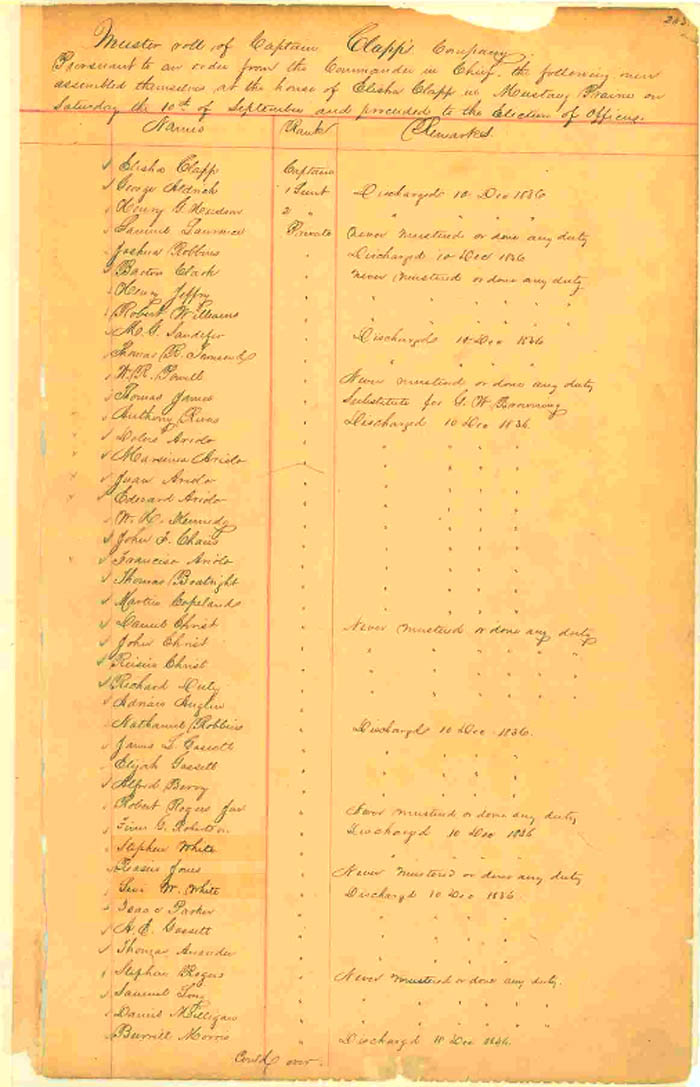 Muster roll of Captain Clapp's Company.
Pursuant to an order from the Commander in Chief. the following men
assembled themselves at the house of Elisha Clapp in Mustang Prairie on
Saturday the 10th of September and proceeded to the Election of Officers.
Names Rank Remarks.
Elisha Clapp Captain
George Aldrich 1 Lieut Discharged 10 Dec 1836
Henry G. Hudson 2 " " " "
Samuel Lawrence Private Never mustered or done any duty
Joshua Robbins " Discharged 10 Dec 1836
Barton Clark " Never mustered or done any duty
Henry Jeffry " " " " "
Robert Williams " " " " "
M. G. Sandifer " Discharged 10 Dec 1836
Thomas R. " " " "
W. R. Powell " Never mustered or done any duty
Thomas James " Substitute for G. W. Browning
Anthony Rivas " Discharged 10 Dec 1836.
Arido " " " "
Arido " " " "
Juan Arido " " " "
Edward Arido " " " "
W. H. Kennedy " " " "
John F. " " " "
Francisco Arido " " " "
Thomas Boatright " " " "
Martin Copeland " " " "
Daniel Christ " Never mustered or done any duty
John Christ " " " " "
Christ " " " " "
Richard Duty " " " " "
Adrian Anglin " " " " "
Nathaniel Robbins " Discharged 10 Dec 1836.
James L. Gossett " " " "
Elijah Gossett " " " "
Alfred Berry " " " "
Robert Rogers Jur " Never mustered or done any duty
G. Robertson " Discharged 10 Dec 1836
Stephen White " " " "
Jones " Never mustered or done any duty
W. White " Discharged 10 Dec 1836.
Isaac Parker " " " "
A. E. Gossett " " " "
Thomas " " " "
Stephen Rogers " Never mustered or done any duty.
Samuel Long " " " " "
Daniel Milligan " " " " "
Burrell Morris " Discharged 10 Dec 1836.
Cont'd over.